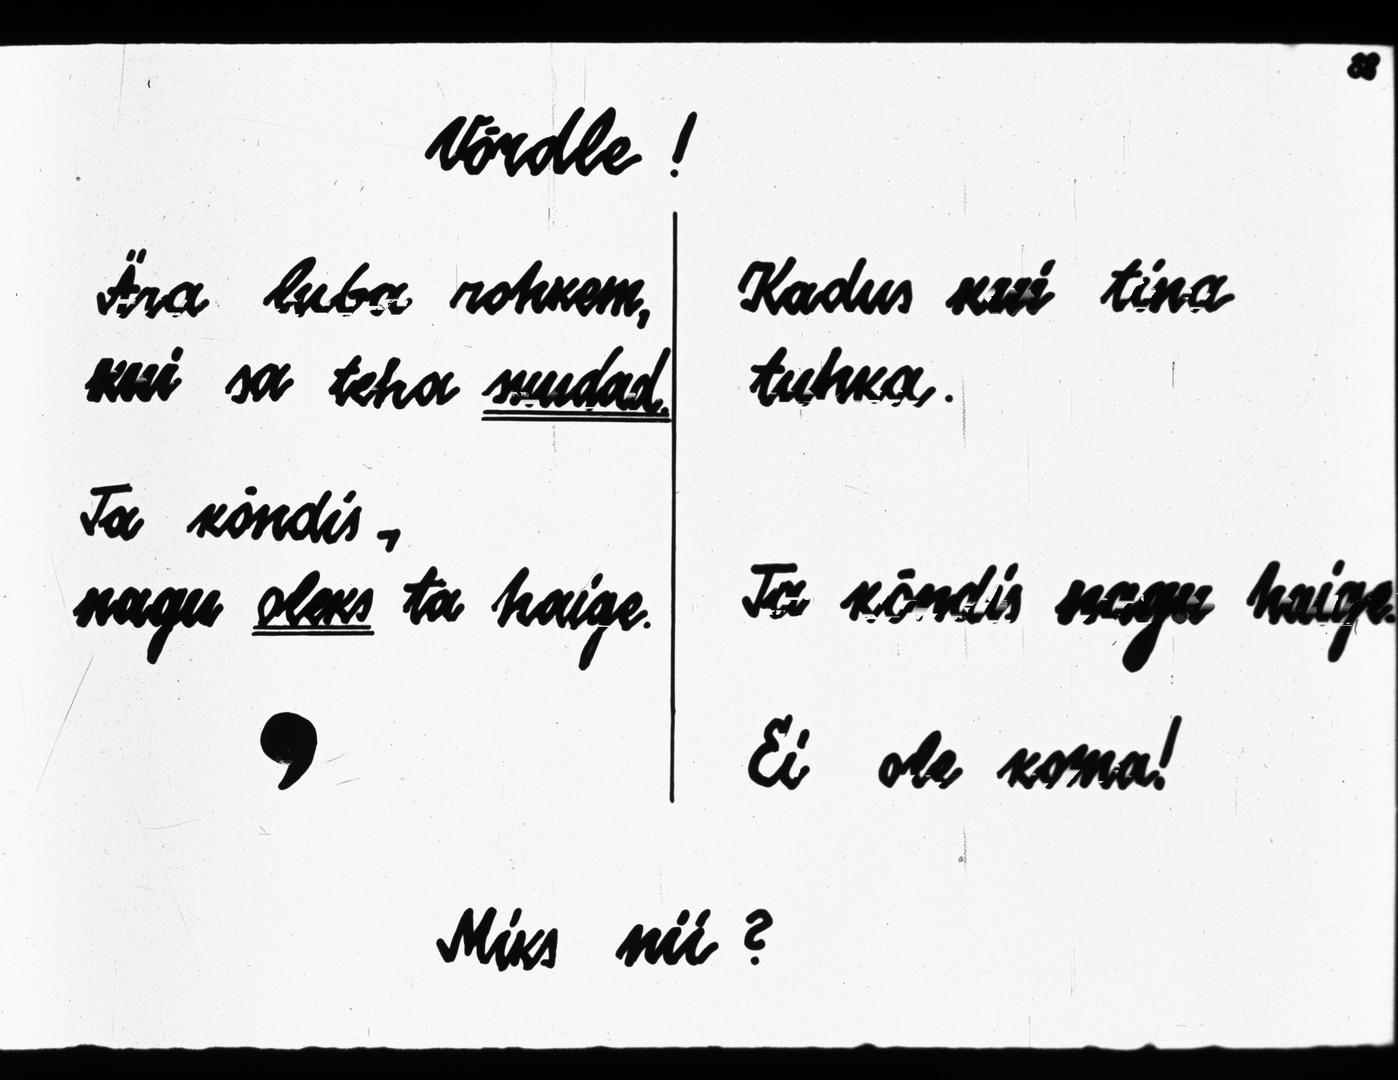 88
Võrdle!
Ära luba rohkem,
kui sa teha suudad.
Ta kõndis,
nagu oleks ta haige.
,
Kadus kui tina
tuhka.
Ta kõndis nagu haige.
Ei ole koma!
Miks nii?